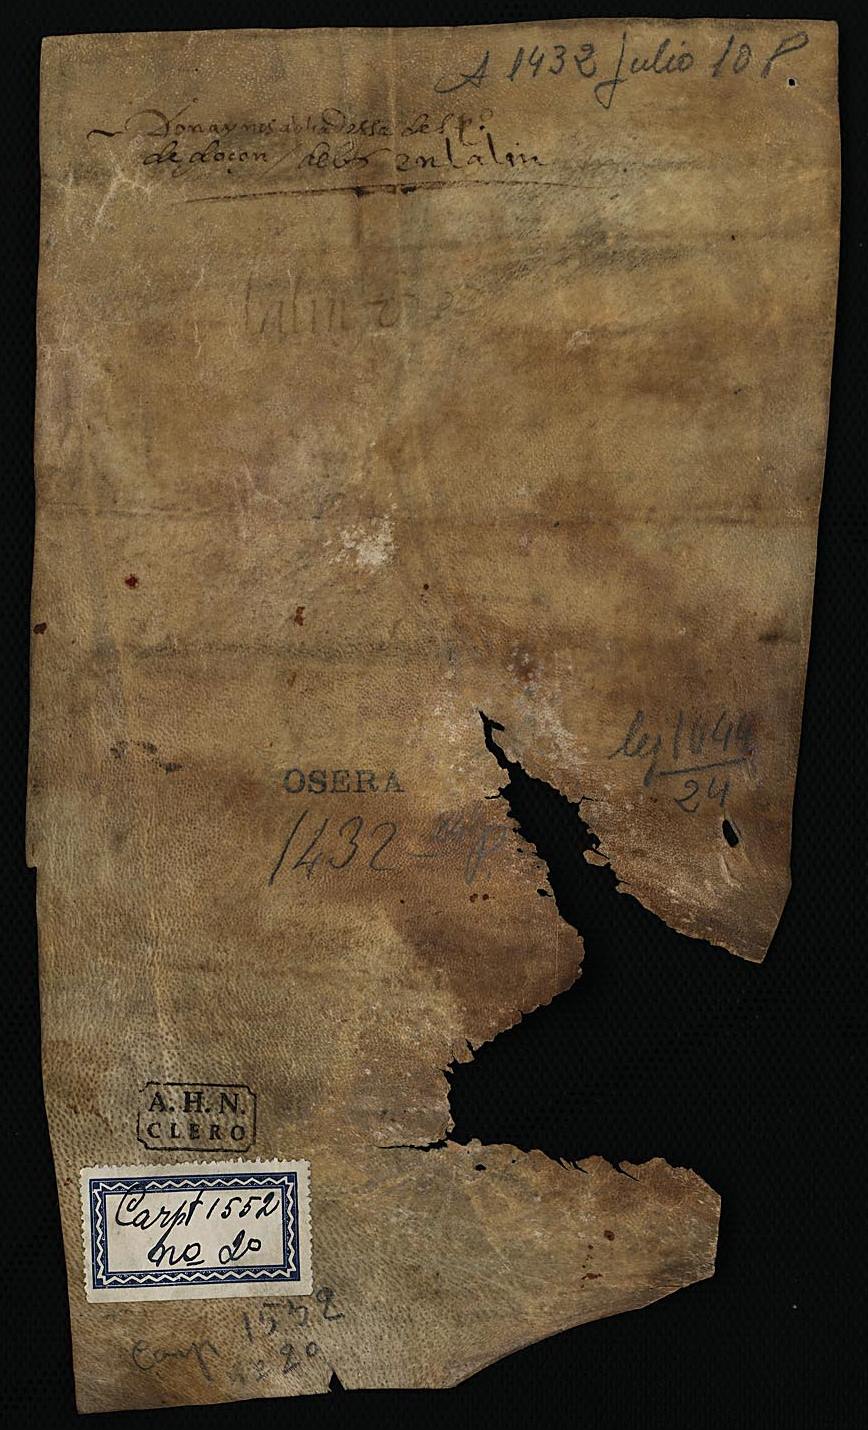 A 1432 Julio 10 P
Dona ynes abadessa del
de doçon en lalin
lalin
leg 1044
24
OSERA
1432
A. H. N.
CLERO
Carpt 1552
no 20
Carp 1552
no 20